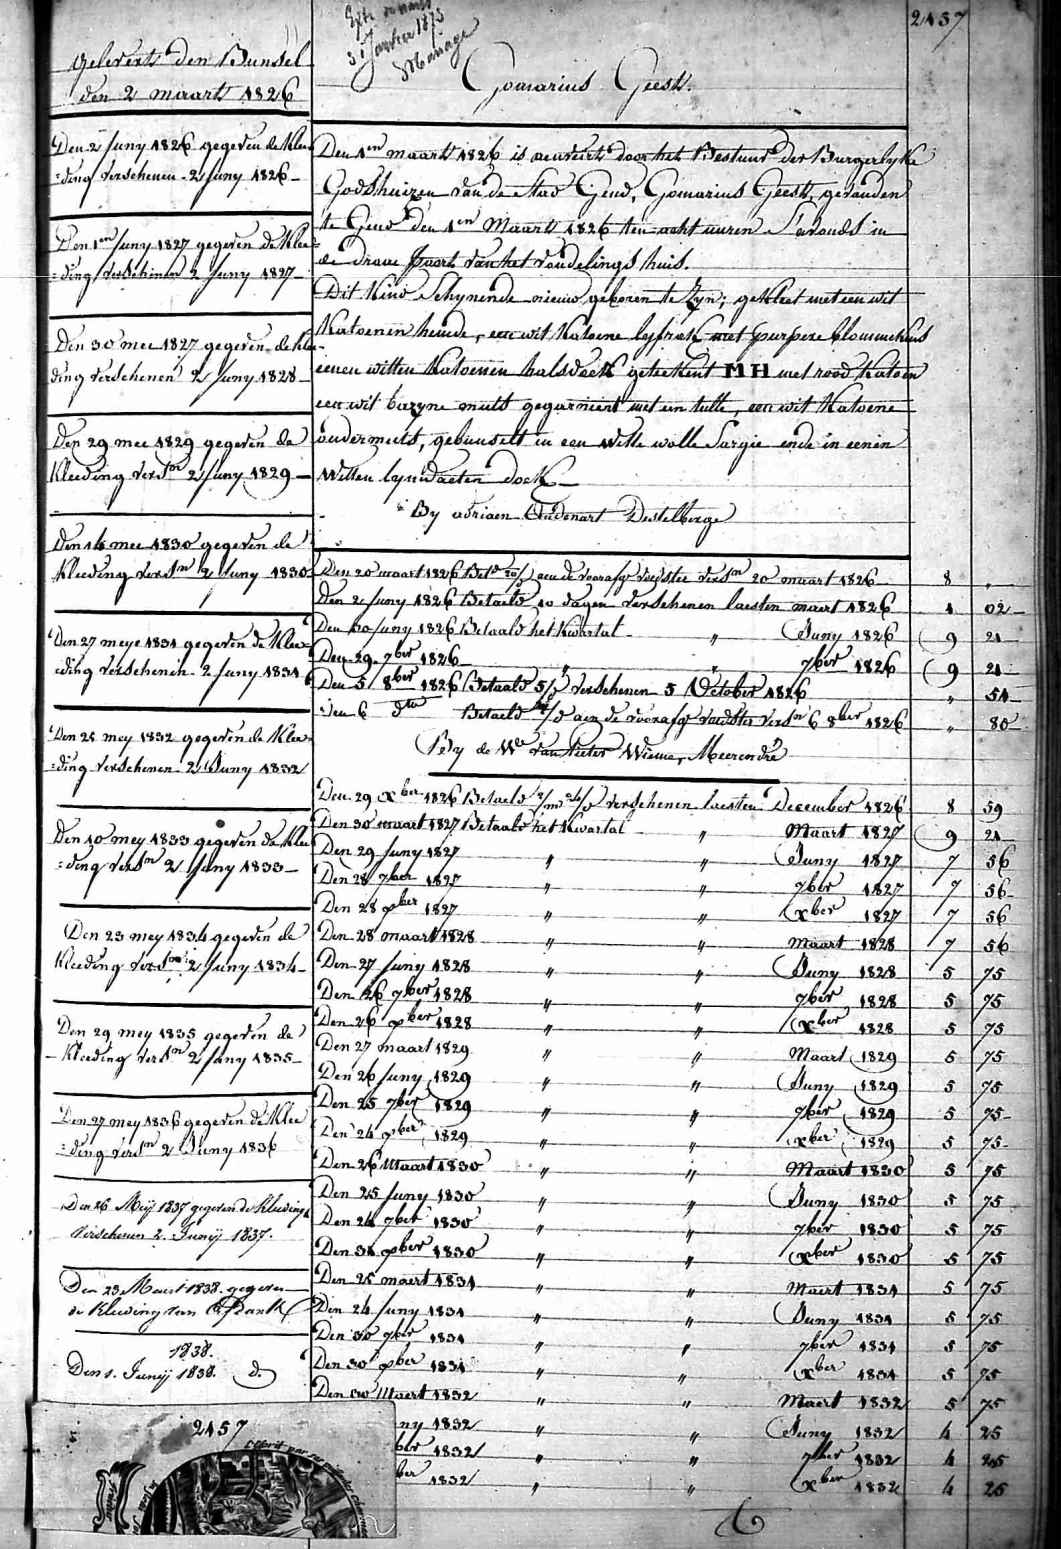 2457
Extr
31 Janvier 1875
Mariage
Gomarius Geest.
gelevert den Bunsel
den 2 maart 1826
Den 2 Juny 1826 gegeven de Klee-
=ding verschenen 2 Juny 1826
Den 1en Juny 1827 gegeven de Klee=
=ding verschenen 2 Juny 1827
Den 30 mei 1827 gegeven de Klee-
ding verschenen 2 Juny 1828
Den 29 mei 1829 gegeven de
Kleeding versn 2 Juny 1829
Den 14 mei 1830 gegeven de
Kleeding versn 2 Juny 1830
Den 27 meye 1831 gegeven de Klee=
eding verschenen 2 Juny 1831
Den 25 mey 1832 gegeven de Klee=
=ding verschenen 2 Juny 1832
Den 10 mey 1833 gegeven de Klee
=ding versn 2 Juny 1833
Den 23 mey 1834 gegeven de
Kleeding versn 2 Juny 1834
Den 29 mey 1835 gegeven de
Kleeding versn 2 Juny 1835
Den 27 mey 1836 gegeven de Klee
=ding versn 2 Juny 1836
Den 26 Meij 1837 gegeven de kleeding
verschenen 2. Junij 1837.
Den 23 Meert 1838 gegeven
de Kleeding van
1838.
Den 1. Junij 1838. do
Den 1en maart 1826 is aenveirt door het Bestuur der Burgerlyke
Godshuizen van de Stad Gend, Gomarius Geest, gevonden
te Gend den 1en Maart 1826 ten acht uuren S'avonds in
de draye Poort van het vondelings huis.
Dit Kind Schynende nieuw geboren te zyn; gekleet met een wit
Katoenen hemde, een wit Katoene lyfrok met purpere blommekens
eenen witten Katoenen halsdoek geteekent MH met rood Katoen
een wit bazyne muts gegarniert met een tulle, een wit Katoene
ondermuts, gebunselt in een Witte wolle Sargie ende in eenen
Witten lynwaeten doek
By adriaen Oudenart Destelberge
Den 20 maart 1826 Betd 20/d aen de voorafg voedster versn 20 maart 1826 8 "
Den 2 Juny 1826 Betaeld 10 dagen verschenen laesten maert 1826 1 02
Den 30 Juny 1826 Betaald het Kwartal " Juny 1826 9 21
Den 29 7ber 1826 " " 7ber 1826 9 21
Den 5 8ber 1826 Betaeld 5/d verschenen 5 October 1826 " 51
Den 6 dto Betaeld /d aen de voorafg voedster versn 6 8ber 1826 " 80
By de We van Pieter Wieme, Meerendre
Den 29 xber 1826 Betaeld 2/m 24/d verschenen laesten December 1826 8 59
Den 30 maart 1827 Betaald het Kwartal " Maart 1827 9 21
Den 29 Juny 1827 " " Juny 1827 7 56
Den 28 7ber 1827 " " 7ber 1827 7 56
Den 28 xber 1827 " " xber 1827 7 56
Den 28 maart 1828 " " maart 1828 7 56
Den 27 Juny 1828 " " Juny 1828 5 75
Den 26 7ber 1828 " " 7ber 1828 5 75
Den 26 xber 1828 " " xber 1828 5 75
Den 27 maart 1829 " " Maart 1829 5 75
Den 26 Juny 1829 " " Juny 1829 5 75
Den 25 7ber 1829 " " 7ber 1829 5 75
Den 24 xber 1829 " " xber 1829 5 75
Den 26 Maart 1830 " " Maart 1830 5 75
Den 25 Juny 1830 " " Juny 1830 5 75
Den 24 7ber 1830 " " 7ber 1830 5 75
Den 31 xber 1830 " " xber 1830 5 75
Den 25 maert 1831 " " Maert 1831 5 75
Den 24 Juny 1831 " " Juny 1831 5 75
Den 30 7ber 1831 " " 7ber 1831 5 75
Den 30 xber 1831 " " xber 1831 5 75
Den 30 Maert 1832 " " Maert 1832 5 75
ny 1832 " " Juny 1832 4 25
ber 1832 " " 7ber 1832 4 25
ber 1832 " " xber 1832 4 25
2457